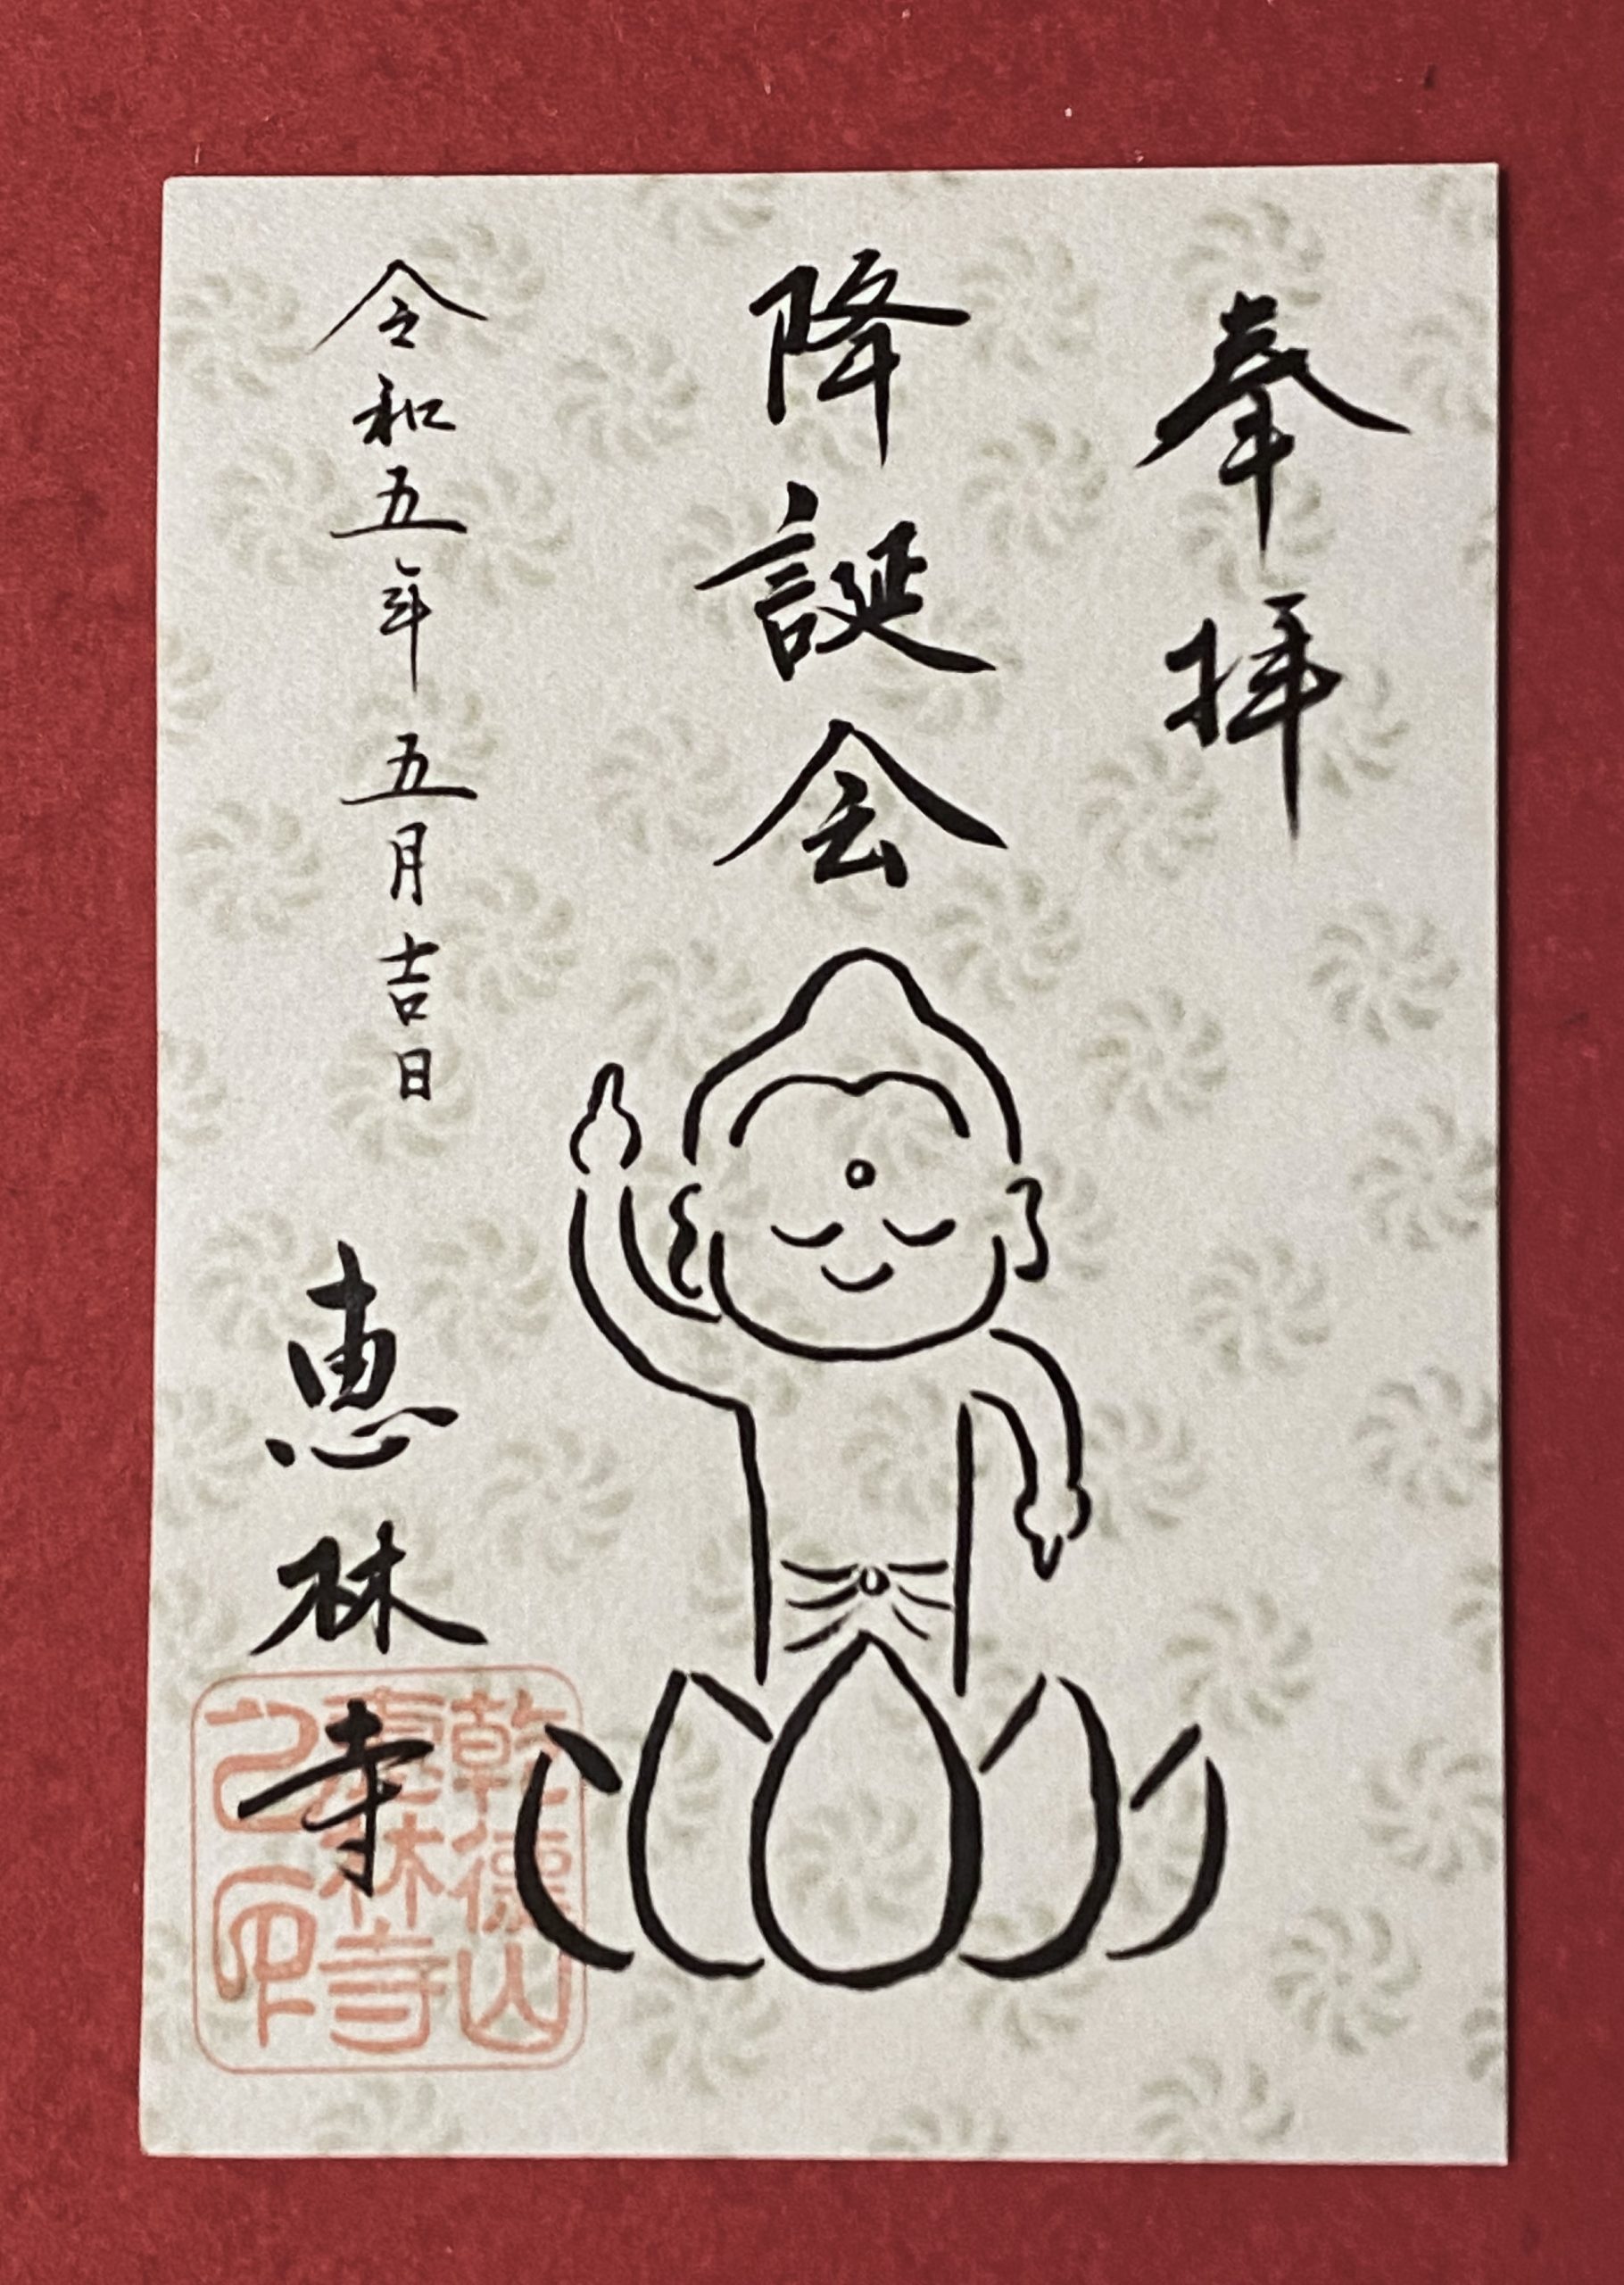 奉拝
降誕会
令和五年 五月吉日
恵林寺
乾徳山
恵林寺
之印